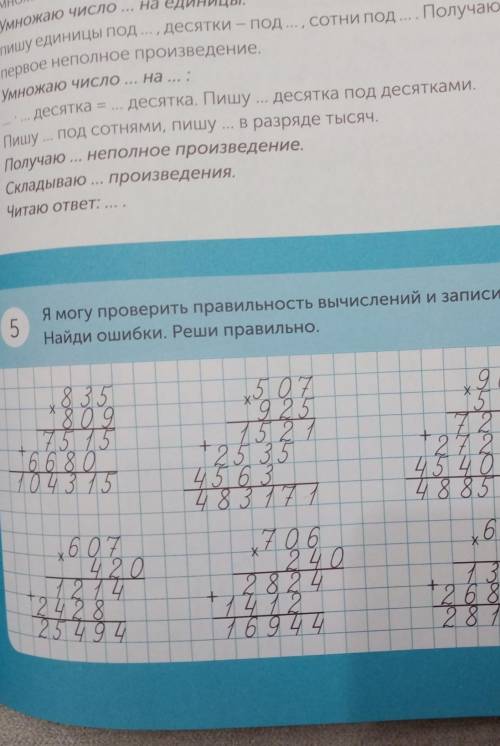 Умножаю число ... на единицы.
пишу единицы под ... , десятки – под ... , сотни под ... . Получаю
первое неполное произведение.
Умножаю число ... на ... :
... · ... десятка = ... десятка. Пишу ... десятка под десятками.
Пишу ... под сотнями, пишу ... в разряде тысяч.
Получаю ... неполное произведение.
Складываю ... произведения.
Читаю ответ: ... .
5
Я могу проверить правильность вычислений и записи
Найди ошибки. Реши правильно.
× 835
809
+ 7515
6680
104315
× 507
925
+ 1521
2535
4563
483171
× 9
5
+ 72
272
4540
4885
× 607
420
+ 1214
2428
25494
× 706
240
+ 2824
1412
16944
× 6
+ 13
268
281